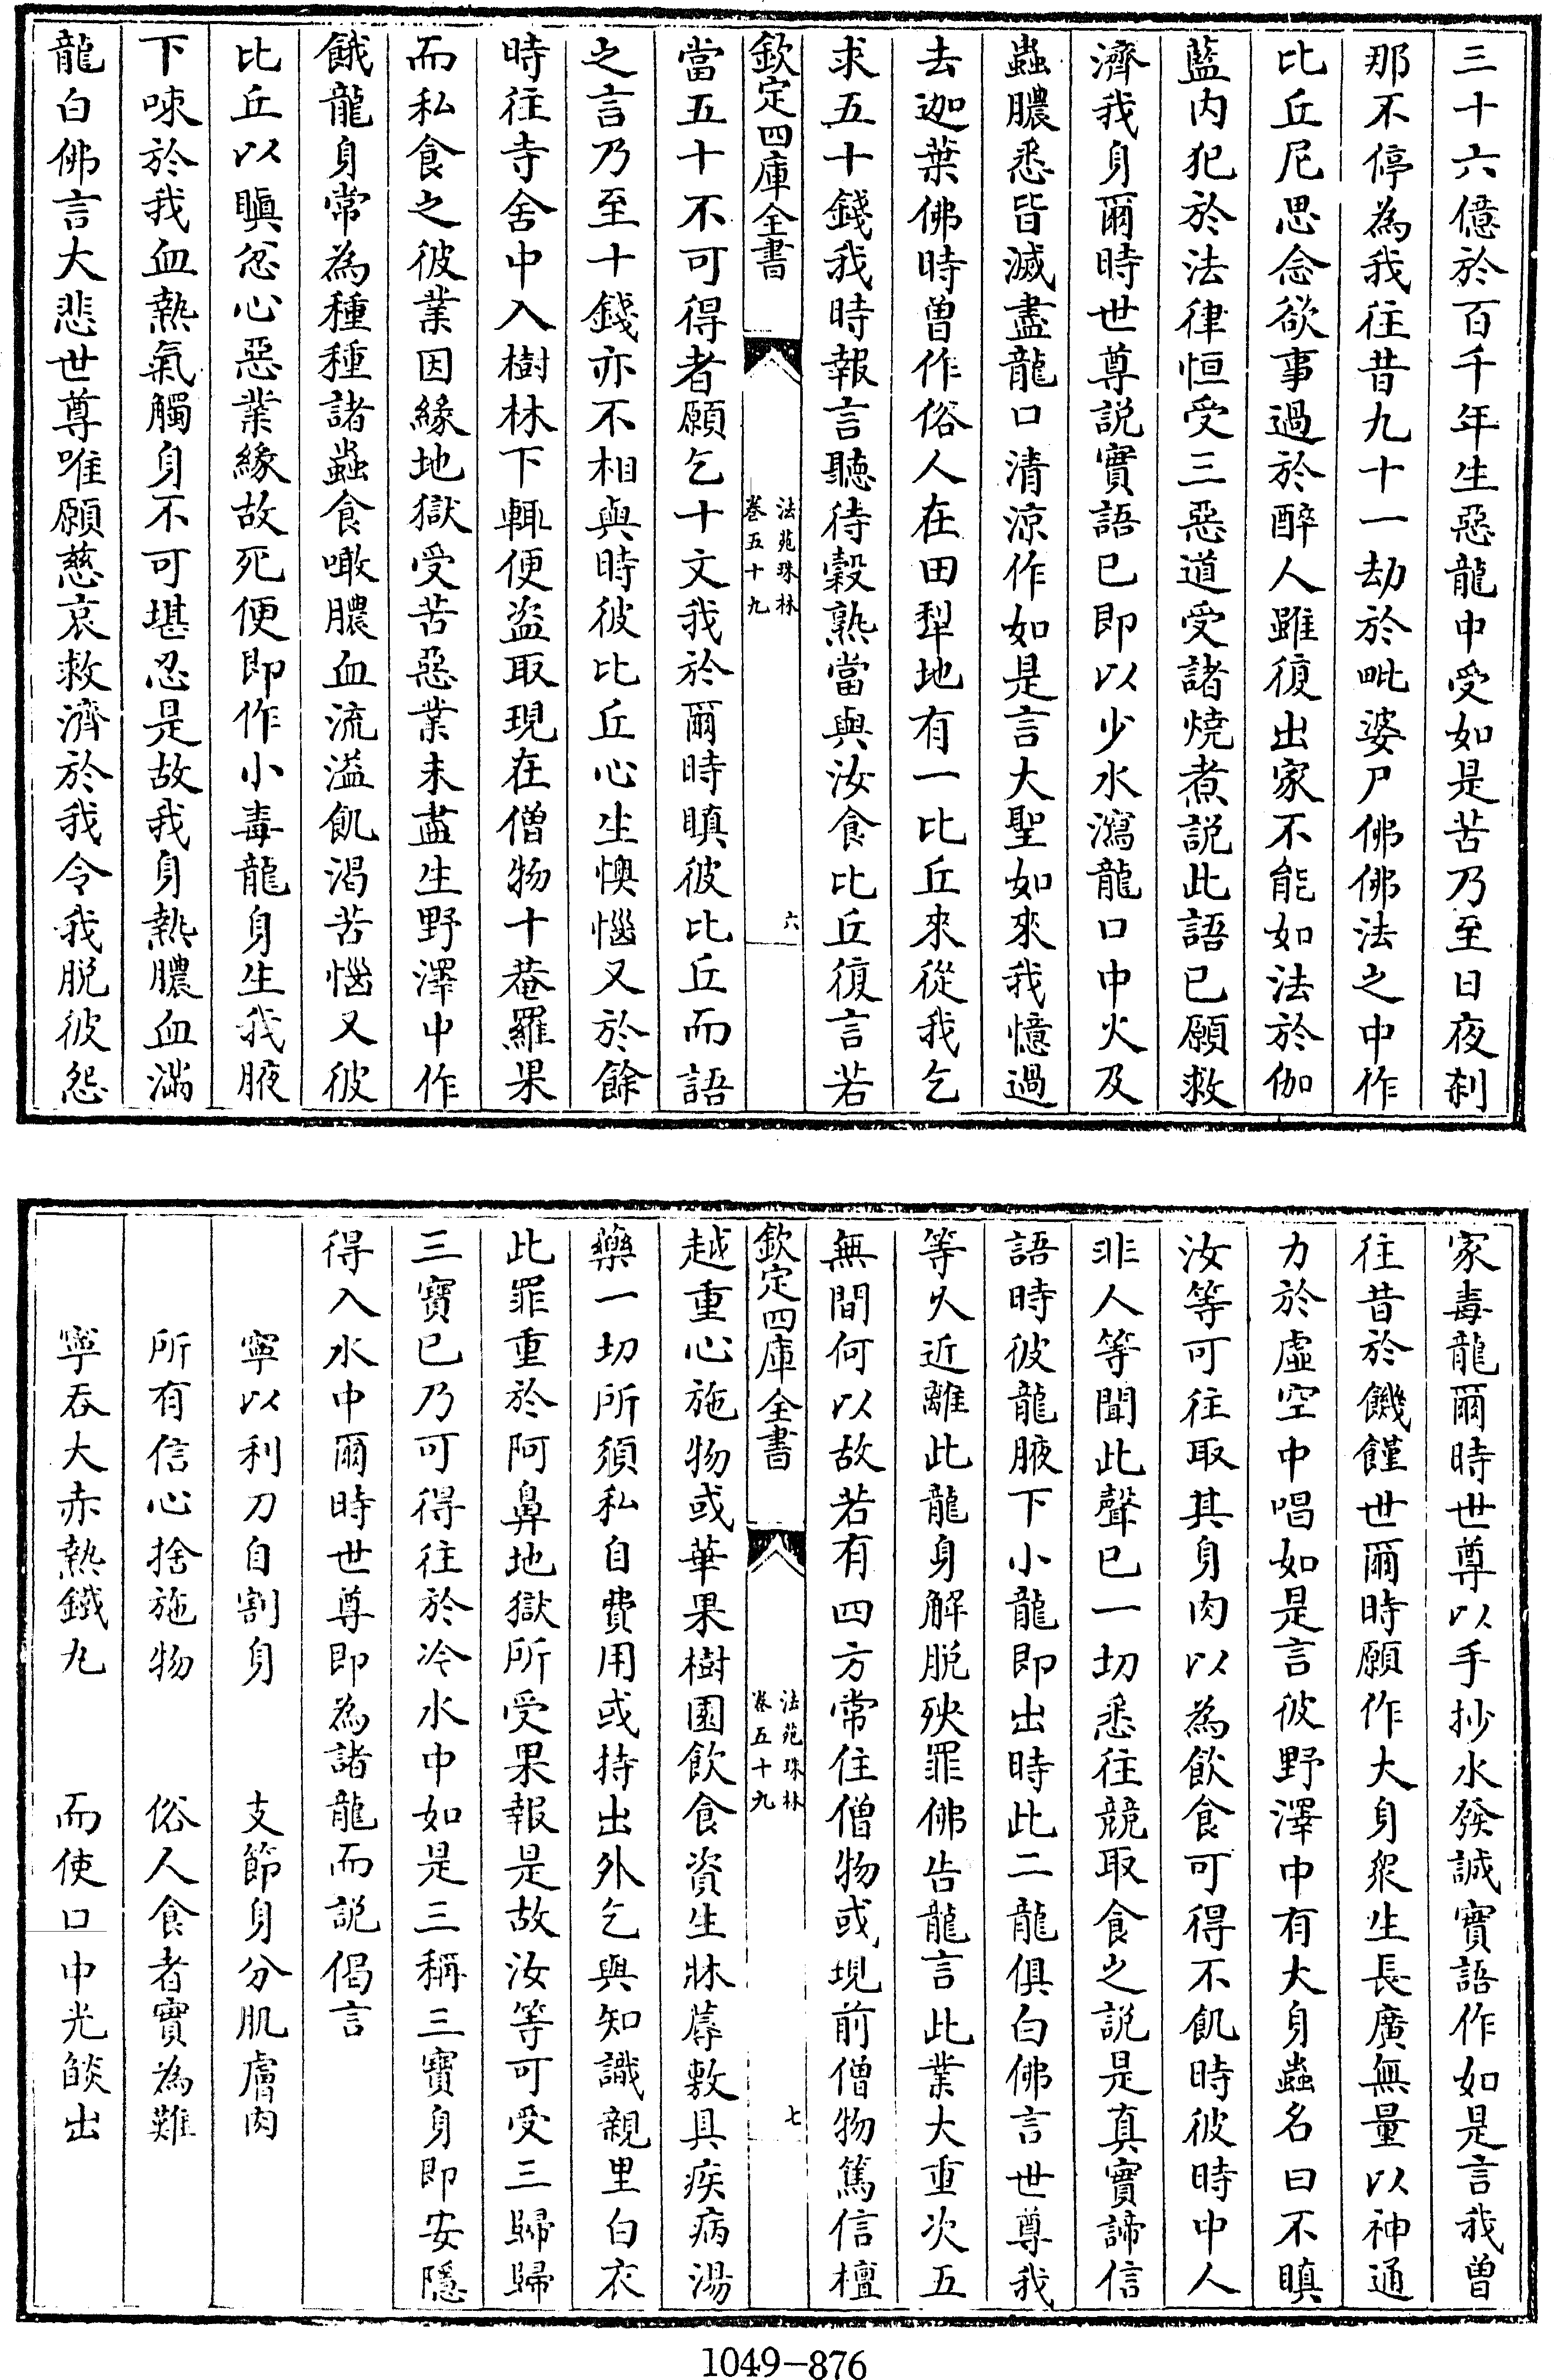 三十六億於百千年生惡龍中受如是苦乃至日夜刹
那不停為我往昔九十一劫於毗婆尸佛佛法之中作
比丘尼思念欲事過於醉人雖復出家不能如法於伽
藍内犯於法律恒受三惡道受諸燒煮説此語已願救
濟我身爾時世尊説實語已即以少水瀉龍口中火及
蟲膿悉皆滅盡龍口清涼作如是言大聖如來我憶過
去迦葉佛時曾作俗人在田犁地有一比丘來從我乞
求五十錢我時報言聽待穀熟當與汝食比丘復言若
欽定四庫全書
法苑珠林
卷五十九
六
當五十不可得者願乞十文我於爾時瞋彼比丘而語
之言乃至十錢亦不相與時彼比丘心生懊惱又於餘
時往寺舍中入樹林下輒便盜取現在僧物十菴羅果
而私食之彼業因緣地獄受苦惡業未盡生野澤中作
餓龍身常為種種諸蟲食噉膿血流溢飢渴苦惱又彼
比丘以瞋忿心惡業緣故死便即作小毒龍身生我腋
下唻於我血熱氣觸身不可堪忍是故我身熱膿血滿
龍白佛言大悲世尊唯願慈哀救濟於我令我脱彼怨
家毒龍爾時世尊以手抄水發誠實語作如是言我曾
往昔於饑饉世爾時願作大身衆生長廣無量以神通
力於虛空中唱如是言彼野澤中有大身蟲名曰不瞋
汝等可往取其身肉以為飲食可得不飢時彼時中人
非人等聞此聲已一切悉往競取食之説是真實諦信
語時彼龍腋下小龍即出時此二龍俱白佛言世尊我
等乆近離此龍身解脱殃罪佛告龍言此業大重次五
無間何以故若有四方常住僧物或現前僧物篤信檀
欽定四庫全書
法苑珠林
卷五十九
七
越重心施物或華果樹園飲食資生牀蓐敷具疾病湯
藥一切所須私自費用或持出外乞與知識親里白衣
此罪重於阿鼻地獄所受果報是故汝等可受三歸歸
三寶已乃可得往於冷水中如是三稱三寶身即安隱
得入水中爾時世尊即為諸龍而説偈言
寧以利刀自割身　支節身分肌膚肉
所有信心捨施物　俗人食者實為難
寧吞大赤熱鐵丸　而使口中光燄出
1049-876